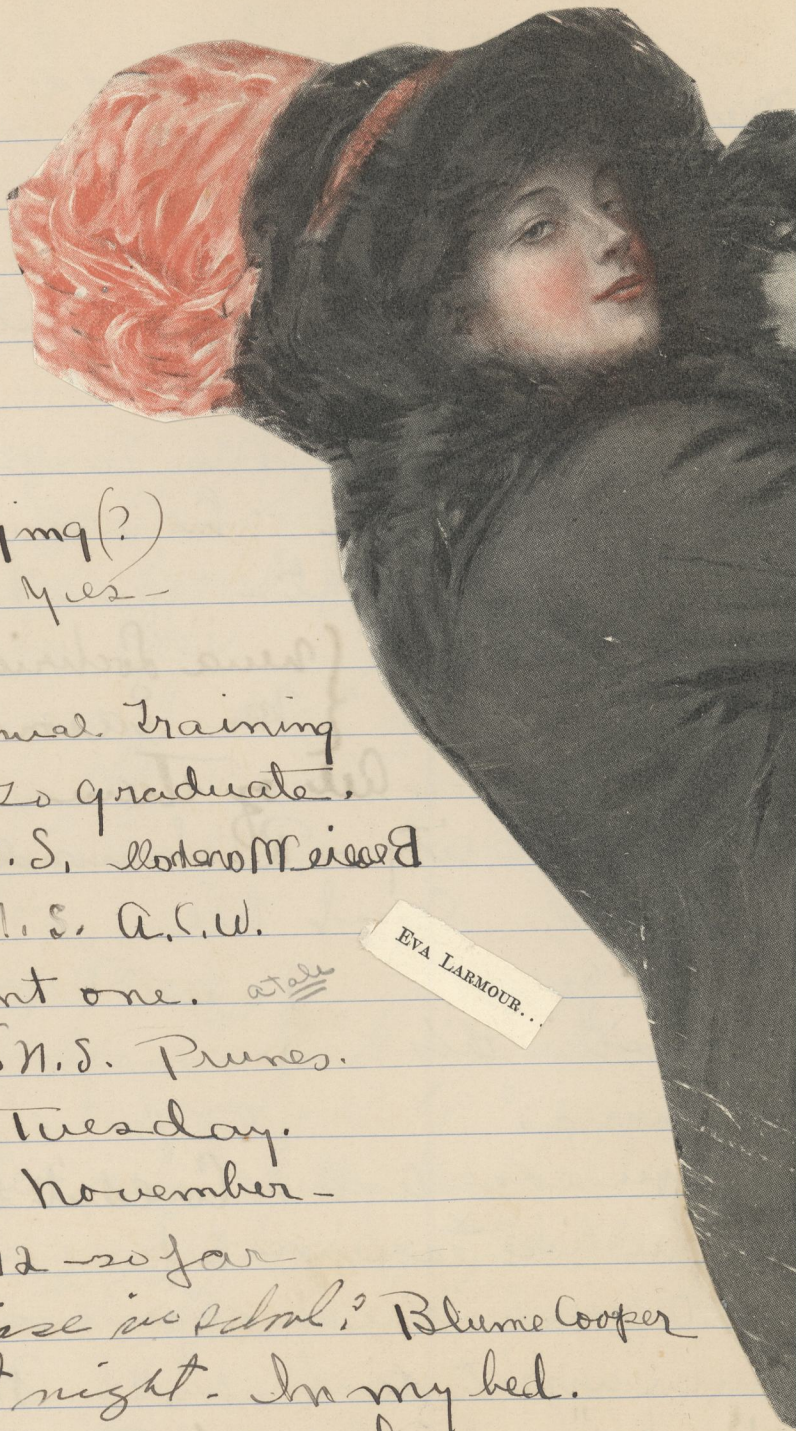 ing(?)
yes-
nual Training
to graduate.
.S. Bessie McMartall
.S. A.C.W.
nt one. a tale
S N.S. Prunes.
Tuesday.
November-
12 - so far
in school? Blume Cooper
night - In my bed.
EVA LARMOUR...